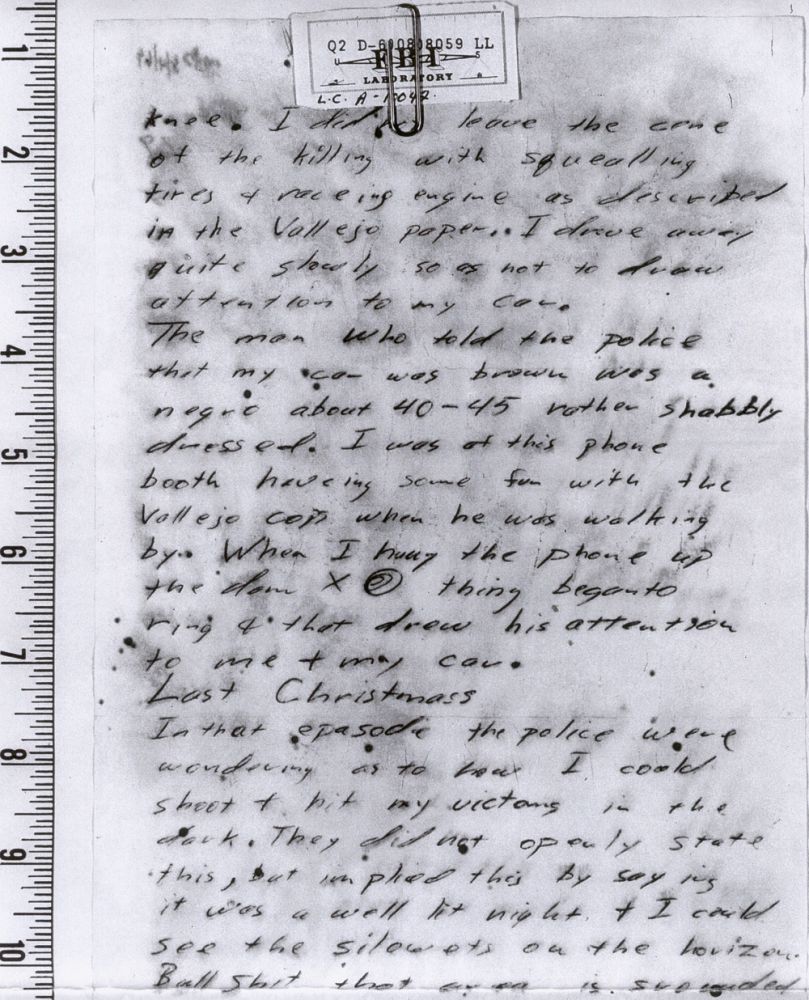 Q2 D-690808059 LL
FBI
LABORATORY
L.C. A-15042
knee. I did not leave the cene
of the killing with squealling
tires + raceing engine as described
in the Vallejo paper.. I drove away
quite slowly so as not to draw
attention to my car.
The man who told the police
that my car was brown was a
negro about 40-45 rather shabbly
dressed. I was at this phone
booth haveing some fun with the
Vallejo cops when he was walking
by. When I hung the phone up
the dam X thing beganto
ring & that drew his attention
to me + my car.
Last Christmass
In that epasode the police were
wondering as to how I could
shoot + hit my victoms in the
dark. They did not openly state
this, but implied this by saying
it was a well lit night + I could
see the silowets on the horizon.
Bullshit that area is srounded
1
2
3
4
5
6
7
8
9
10